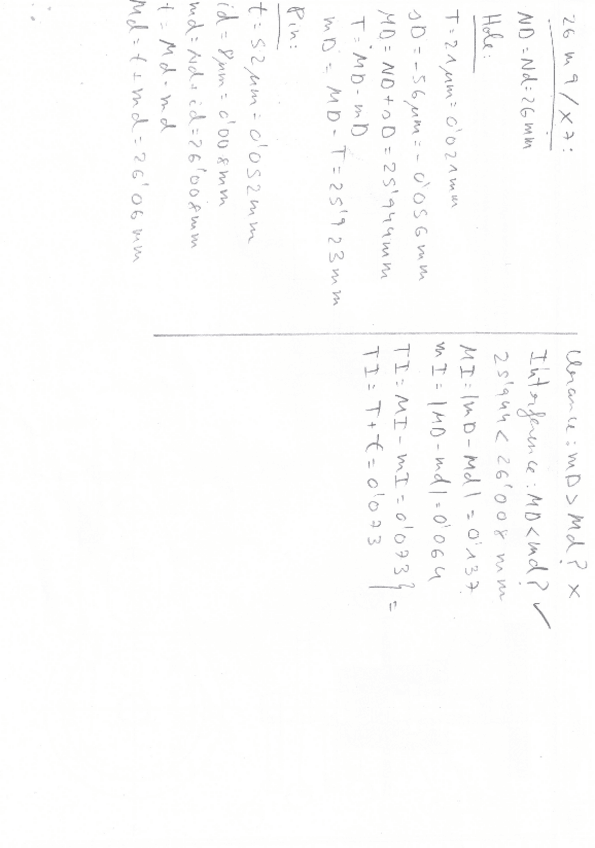 26 m 9 / X7:
ND = Nd = 26 mm
Hole:
T = 21 μm = 0'021 mm
sD = -56 μm = -0'056 mm
MD = ND + sD = 25'944 mm
T = MD - mD
mD = MD - T = 25'923 mm
Pin:
t = 52 μm = 0'052 mm
id = 8 μm = 0'008 mm
md = Nd + id = 26'008 mm
t = Md - md
Md = t + md = 26'06 mm
Clerance: mD > Md? ×
Interference: MD < md? ✓
25'944 < 26'008 mm
MI = |mD - Md| = 0'137
mI = |MD - md| = 0'064
TI = MI - mI = 0'073 } =
TI = T + t = 0'073